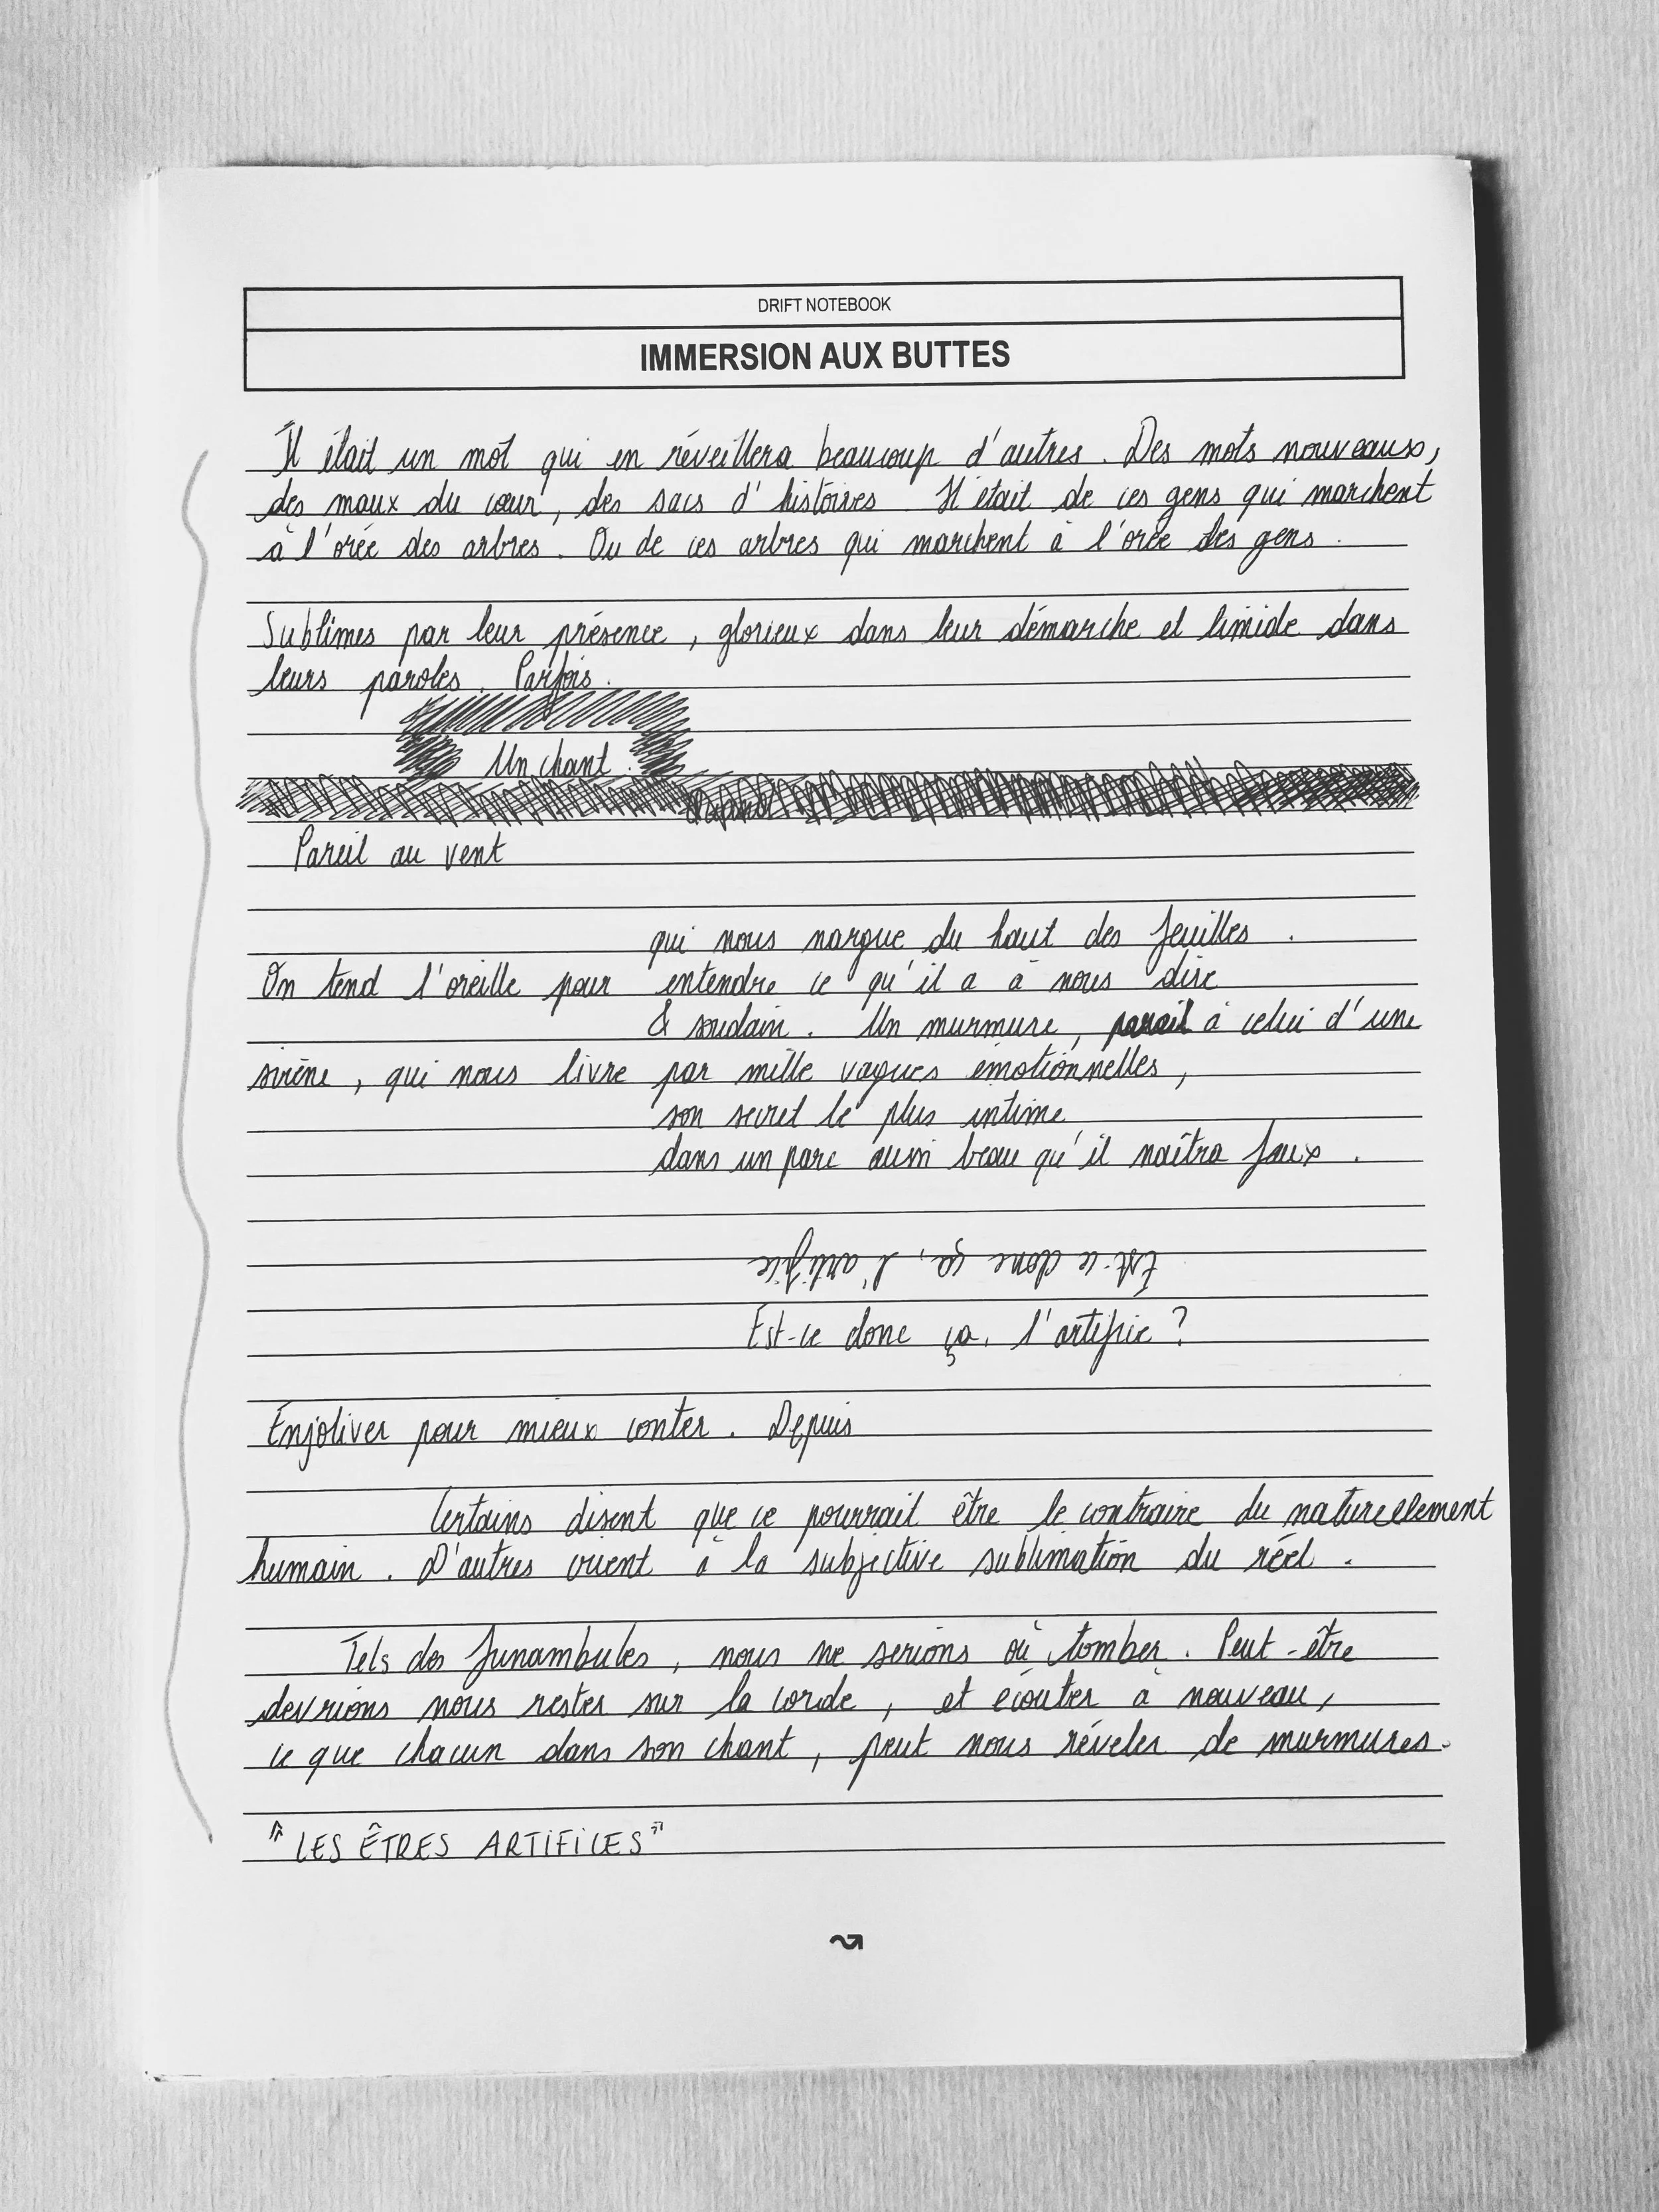 DRIFT NOTEBOOK
IMMERSION AUX BUTTES
Il était un mot qui en réveillera beaucoup d'autres. Des mots nouveaux,
des maux du cœur, des sacs d'histoires Il était de ces gens qui marchent
à l'orée des arbres. Ou de ces arbres qui marchent à l'orée des gens.
Sublimes par leur présence, glorieux dans leur démarche et timide dans
leurs paroles. Parfois.
Un chant.
Pareil au vent
qui nous nargue du haut des feuilles.
On tend l'oreille pour entendre ce qu'il a à nous dire
& soudain. Un murmure, pareil à celui d'une
sirène, qui nous livre par mille vagues émotionnelles,
son secret le plus intime
dans un parc aussi beau qu'il naîtra faux.
Est-ce donc ça, l'artifice
Est-ce donc ça, l'artifice ?
Enjoliver pour mieux conter. Depuis
Certains disent que ce pourrait être le contraire du naturellement
humain. D'autres crient à la subjective sublimation du réel.
Tels des funambules, nous ne serions où tomber. Peut-être
devrions nous rester sur la corde, et écouter à nouveau,
ce que chacun dans son chant, peut nous révéler de murmures.
"LES ÊTRES ARTIFICES"